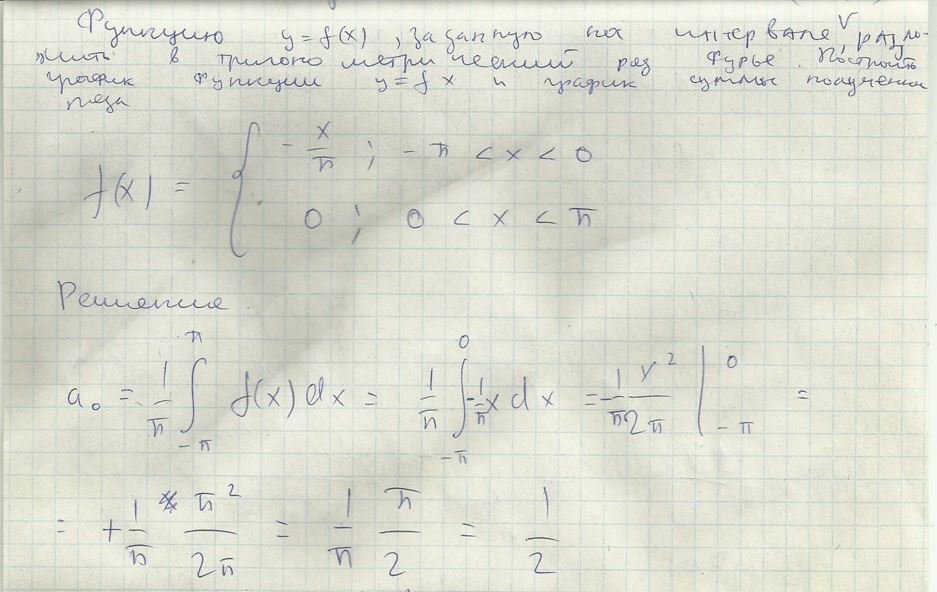 Функцию y = f(x), заданную на интервале, разло-
жить в тригонометрический ряд Фурье. Построить
график функции y = f x и график суммы полученного
ряда
f(x) = { - x/π ; - π < x < 0
0 ; 0 < x < π
Решение
a₀ = 1/π ∫_{-π}^{π} f(x) dx = 1/π ∫_{-π}^{0} -1/π x dx = -1/π x²/2π |_{-π}^{0} =
= + 1/π π²/2π = 1/π π/2 = 1/2